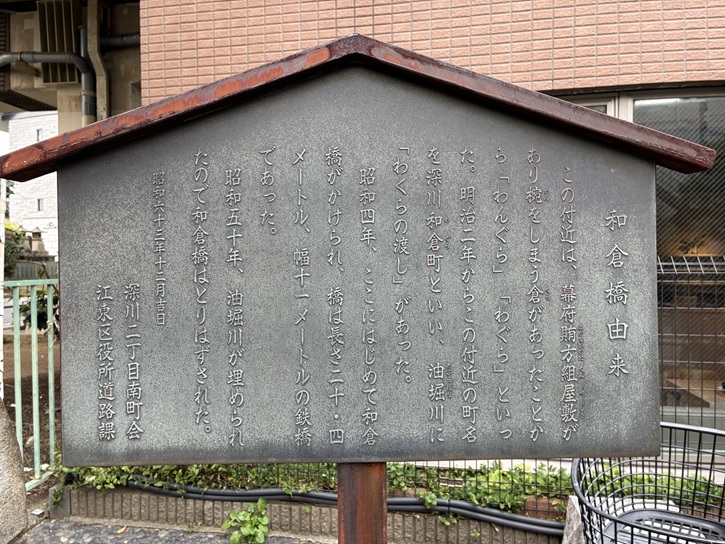 和倉橋由来
この付近は、幕府賄方組屋敷が
あり椀をしまう倉があったことか
ら「わんぐら」「わぐら」といっ
た。明治二年からこの付近の町名
を深川和倉町といい、油堀川に
「わぐらの渡し」があった。
昭和四年、ここにはじめて和倉
橋がかけられ、橋は長さ二十・四
メートル、幅十一メートルの鉄橋
であった。
昭和五十年、油堀川が埋められ
たので和倉橋はとりはずされた。
昭和六十三年十二月吉日
深川二丁目南町会
江東区役所道路課